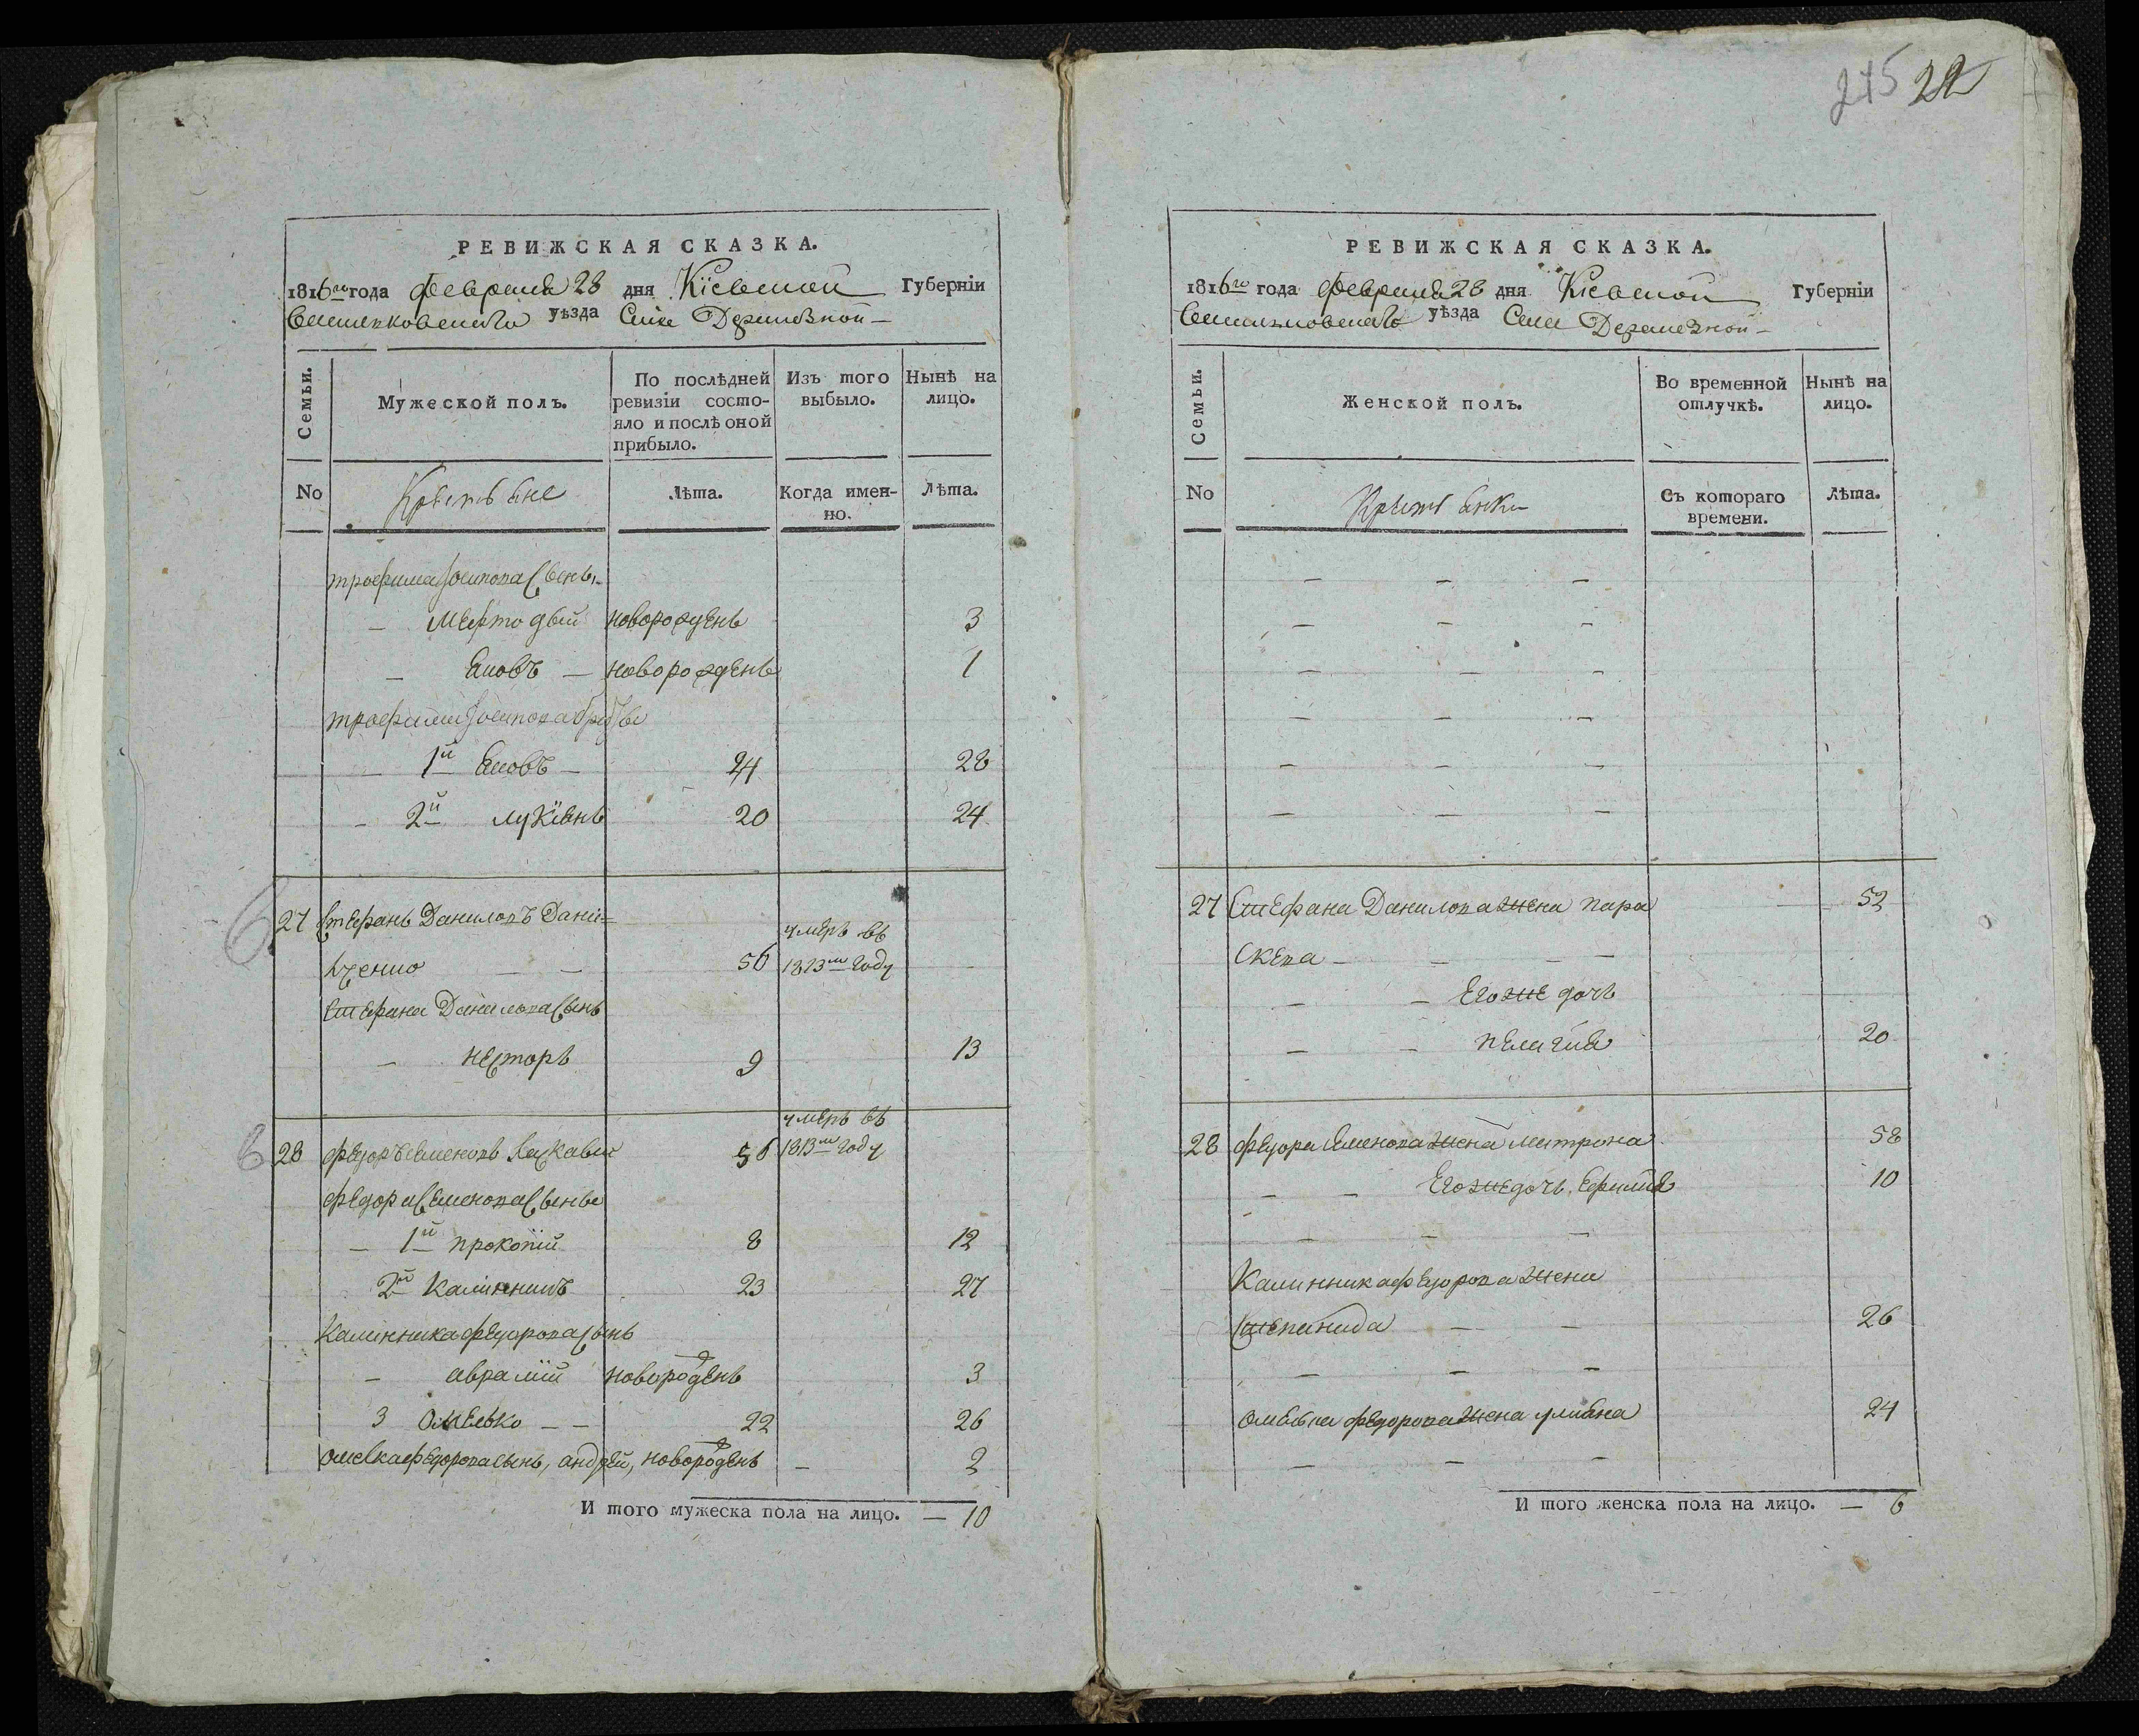 245 22
РЕВИЖСКАЯ СКАЗКА.
1816го года февраля 28 дня Кіевской Губерніи
уѣзда Села
Семьи.
Мужеской полъ.
По послѣдней ревизіи состо-
яло и послѣ оной прибыло.
Изъ того выбыло.
Нынѣ на лицо.
No
Крестьяне
Лѣта.
Когда имен-
но.
Лѣта.
трофима осипова сыны
новорожденъ 3
Яковъ — новорожденъ 1
трофима осипова братья
1й Яковъ — 24 28
2й лукіянъ 20 24
27 Стефанъ Даниловъ Дани-
лченко — — 56 умеръ въ 1813м году
Стефана Данилова сынъ
несторъ 9 13
28 федоръ Семеновъ 56 умеръ въ 1813м году
федора Семенова сынъ
1й прокопій 8 12
2й Калинникъ 23 27
Калинника федорова сынъ
аврамій новорожденъ 3
3 Омелько — — 22 26
омелка федорова сынъ, андрей, новорожденъ — 2
И того мужеска пола на лицо. — 10
РЕВИЖСКАЯ СКАЗКА.
1816го года февраля 28 дня Кіевской Губерніи
уѣзда Села
Семьи.
Женской полъ.
Во временной отлучкѣ.
Нынѣ на лицо.
No
Крестьянки
Съ котораго времени.
Лѣта.
27 Стефана Данилова жена пара 52
скева — — —
— — Егоже дочь
— — пелагия 20
28 федора Семенова жена матрона 58
— — Егоже дочь, Ефимия 10
Калинника федорова жена
Степанида — — 26
омелка федорова жена улияна 24
И того женска пола на лицо. — 6